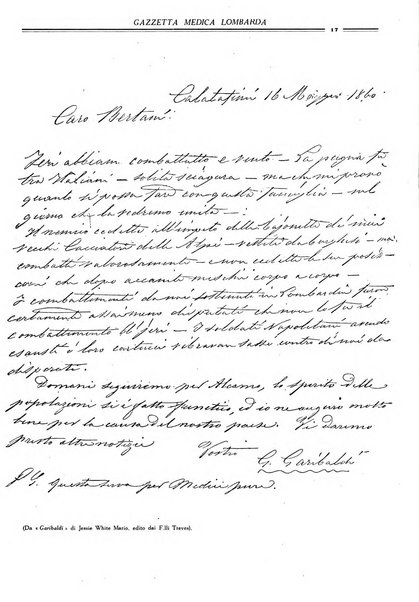 GAZZETTA MEDICA LOMBARDA
17
Calatafimi 16 Maggio 1860
Caro Bertani:
Ieri abbiam combattuto e vinto — La pugna fu
tra Italiani — solita sciagura — ma che mi provò
quanto si possa fare con questa famiglia — nel
giorno che la vedremo unita —:
Il nemico cedette all'impeto delle bajonette de' miei
vecchi Cacciatori delle Alpi — vestiti da borghesi — ma
combattè valorosamente — e non cedette le sue posi-
zioni che dopo accanite mischie corpo a corpo —
I combattimenti da noi sostenuti in Lombardia furon
certamente assai meno disputati che non lo fu il
combattimento di Jeri — I soldati Napoletani avendo
esausti o loro cartucci vibravan sassi contro di noi da
disperati.
Domani seguiremo per Alcamo, lo spirito delle
popolazioni si è fatto frenetico, ed io ne auguro molto
bene per la causa del nostro paese. Vi daremo
presto altre notizie
Vostro
G. Garibaldi
P.S. questa serva per Medici pure.
(Da « Garibaldi » di Jessie White Mario, edito dai F.lli Treves).